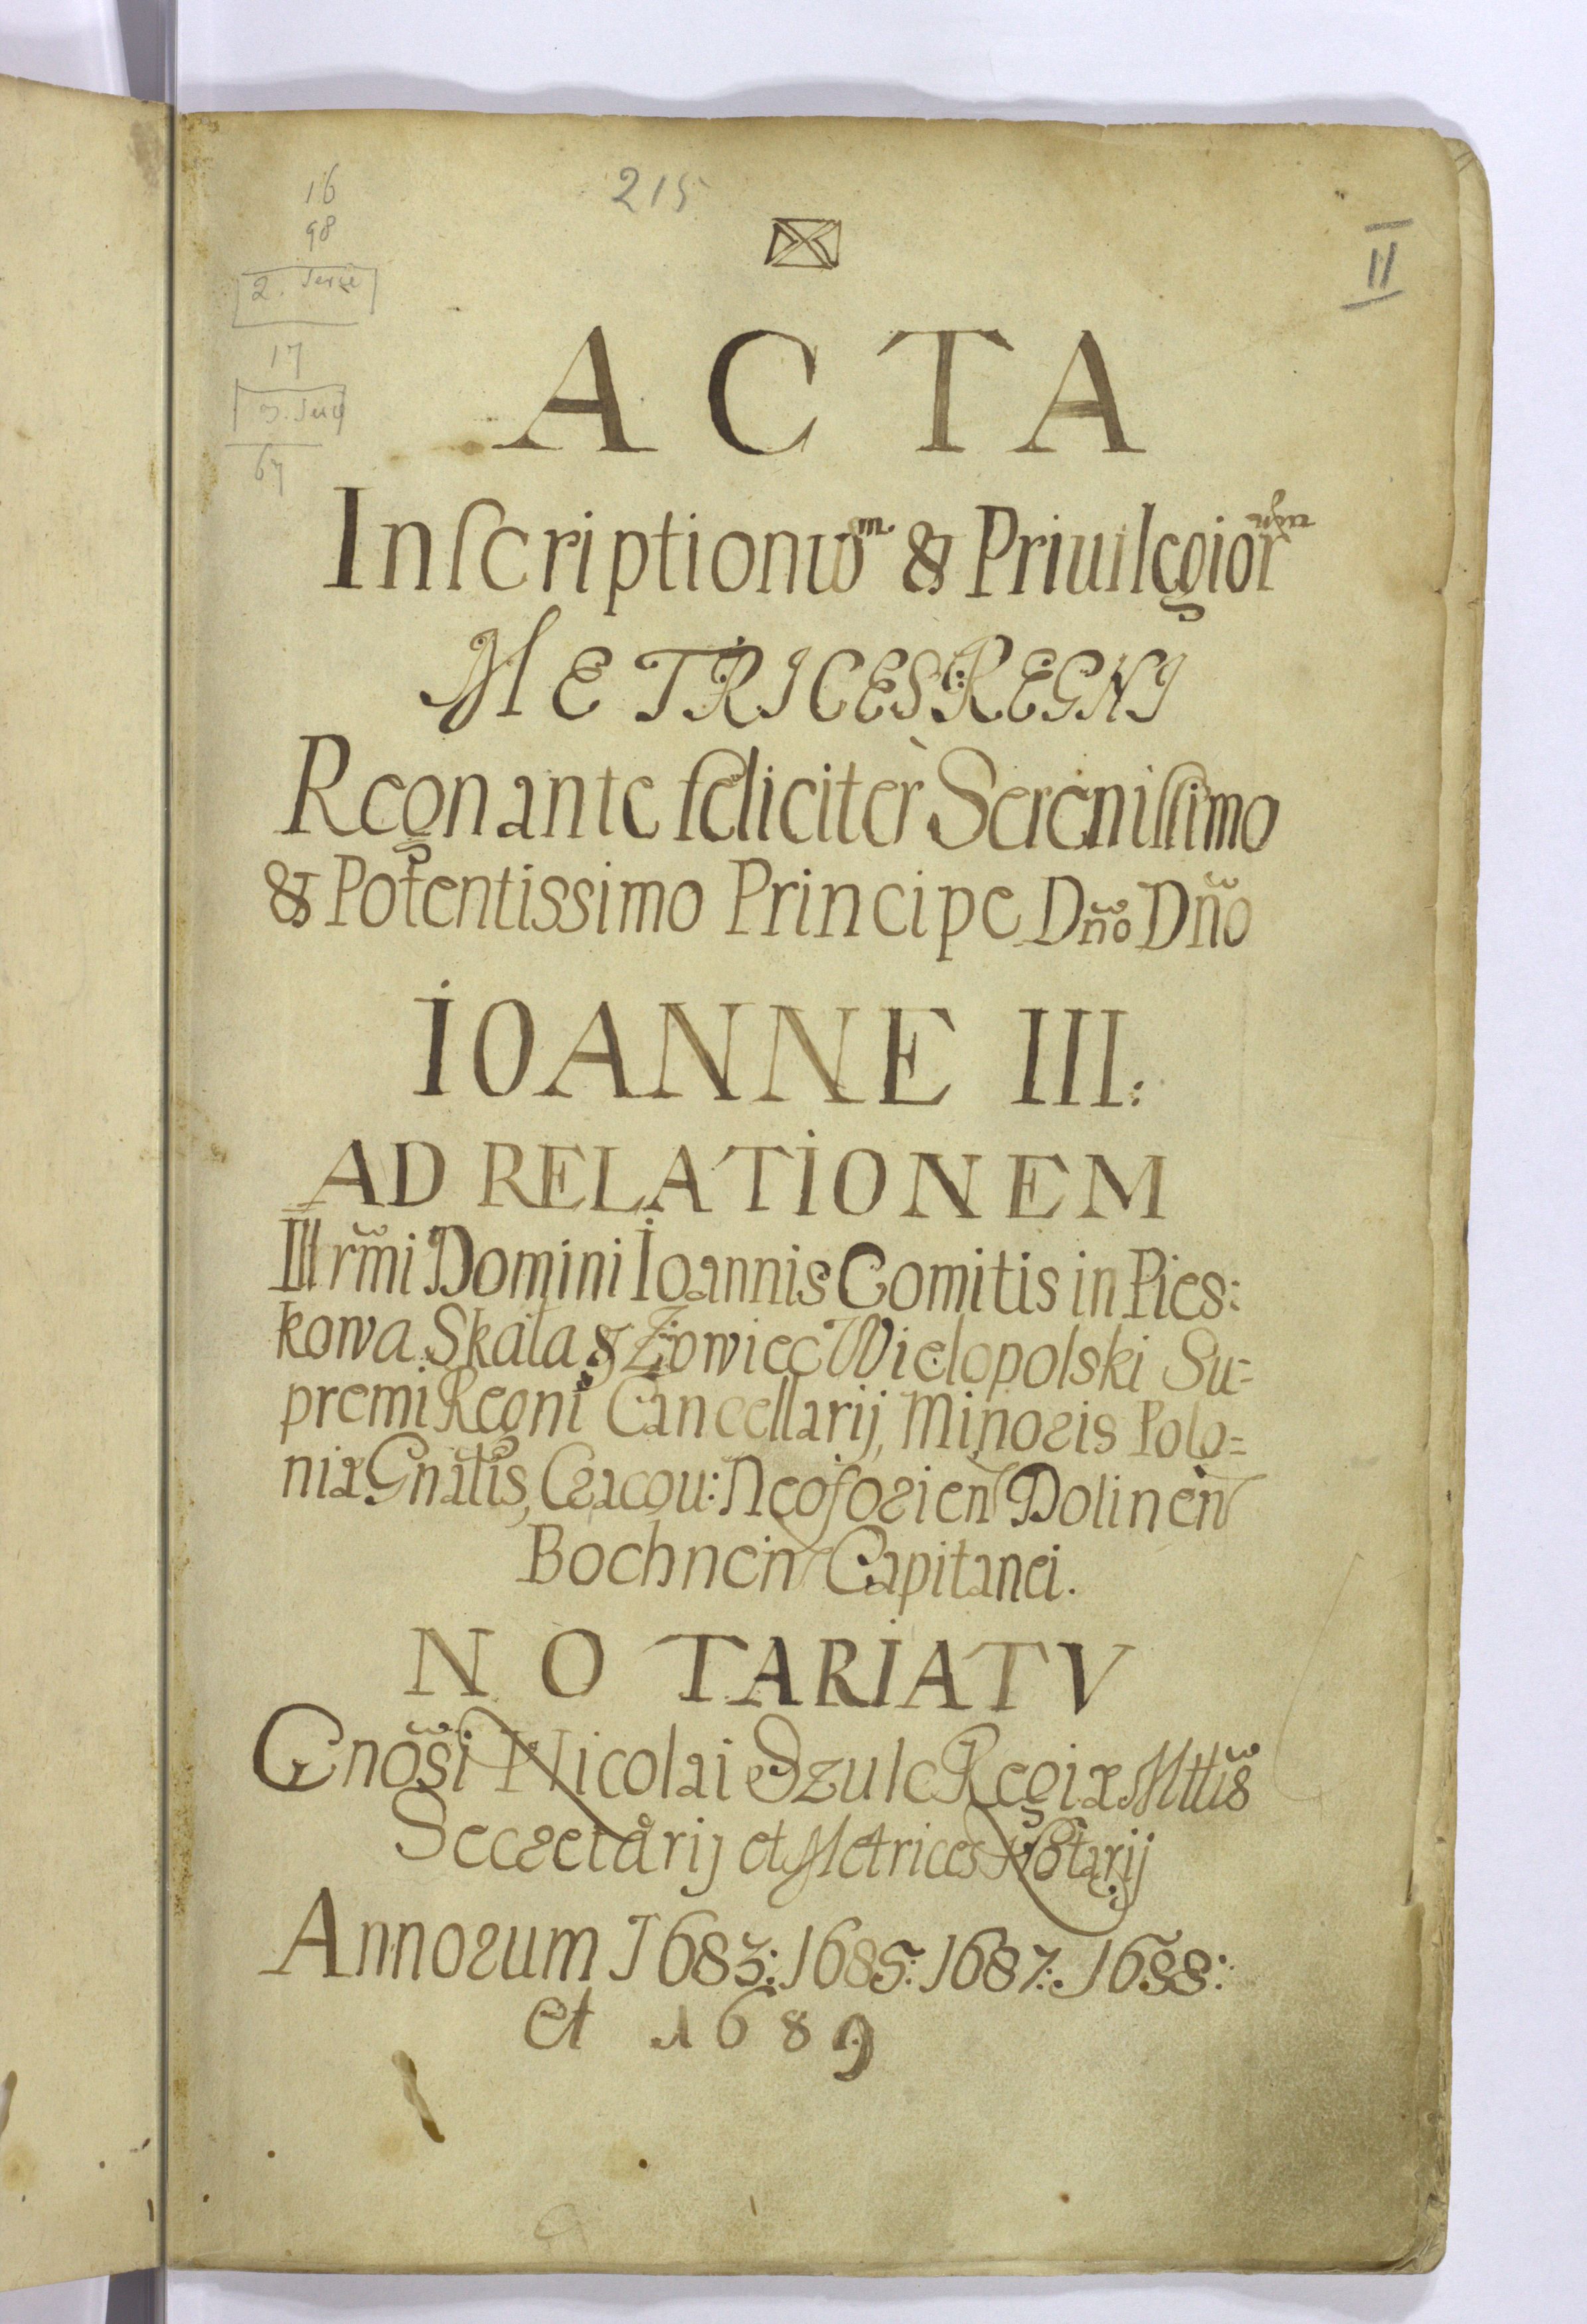 16
98
215
II
2. Serie
17
67
ACTA
Inſcriptionum & Priuilegiorum
METRICES REGNI
Regnante feliciter Sereniſſimo
& Potentissimo Principe Dño Dño
IOANNE III:
AD RELATIONEM
Illrm̃i Domini Ioannis Comitis in Pies:
kowa Skała & Żowiec Wielopolski Su=
premi Regni Cancellarij, Minoris Polo=
niæ Gnãlis, Cracou: Neoforień Dolineñ
Bochneñ Capitanei.
NOTARIATV
Gnõsi Nicolai Dzulc Regiæ Mttis
Secretarij et Metrices Notarij
Annorum 1683: 1685: 1687: 1688:
et 1689